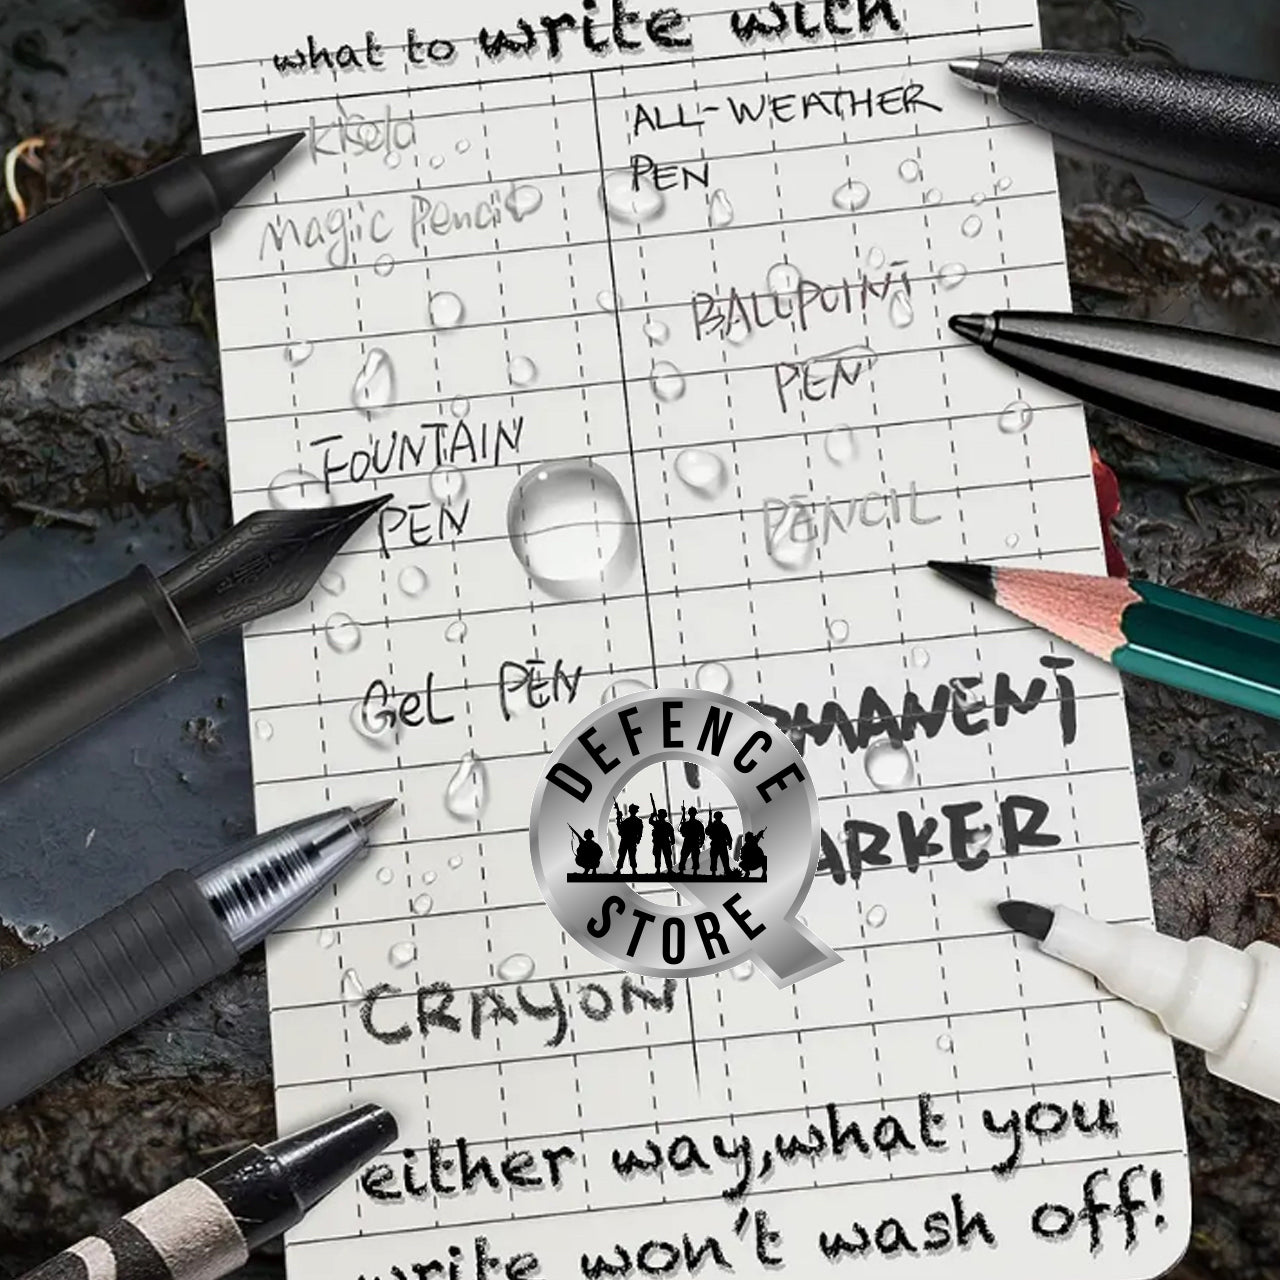 what to write with
Magic Pencil
FOUNTAIN
PEN
GeL PEN
CRAYON
ALL-WEATHER
PEN
BALLPOINT
PEN
PENCIL
ARKER
DEFENCE
STORE
either way,what you
write won't wash off!